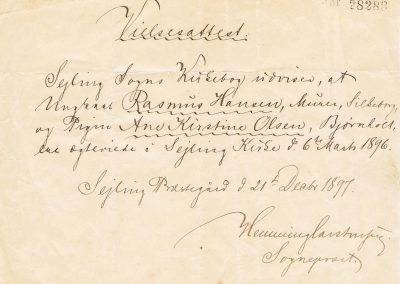 28283
Vielsesattest.
Sejling Sogns Kirkebog udviser, at
Ungkarl Rasmus Hansen, Murer, Silkeborg,
og Pigen Ane Kirstine Olsen, Bjørnholt,
ere ægteviede i Sejling Kirke d. 6te Marts 1896.
Sejling Præstegård d. 21de Decbr 1897.
Sognepræst.